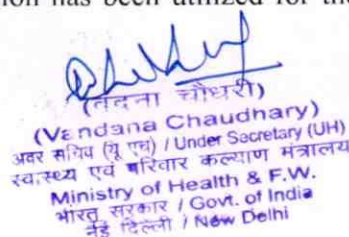 ion has been utilized for the
(वंदना चौधरी)
(Vandana Chaudhary)
अवर सचिव (यू एच) / Under Secretary (UH)
स्वास्थ्य एवं परिवार कल्याण मंत्रालय
Ministry of Health & F.W.
भारत सरकार / Govt. of India
नई दिल्ली / New Delhi